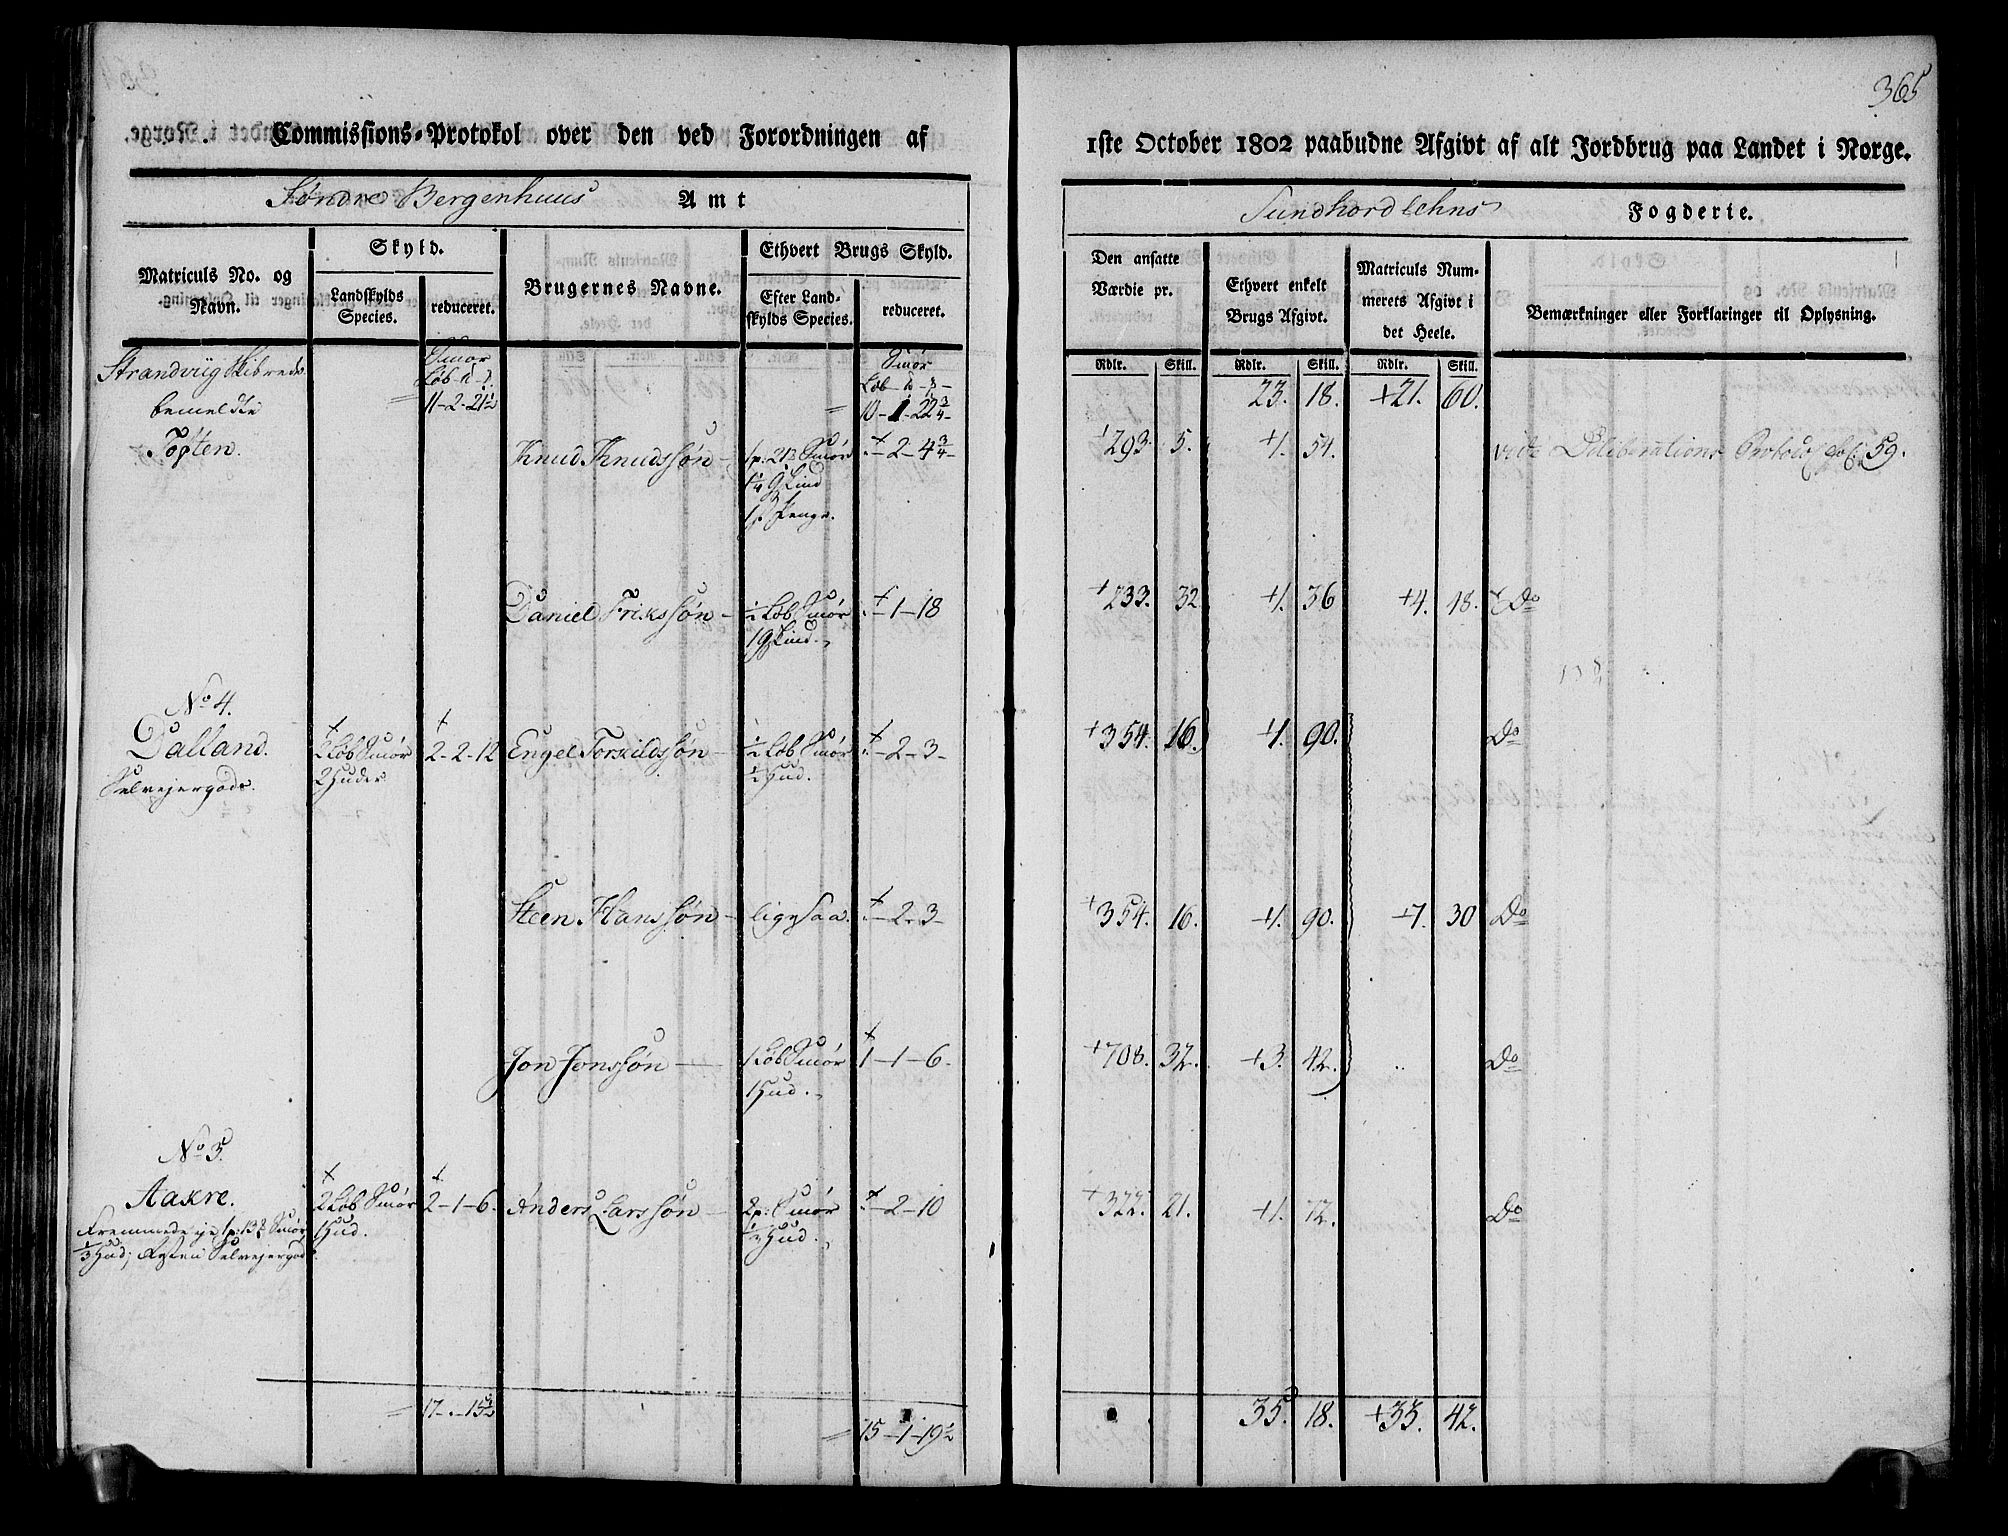 365
Commissions-Protokol over den ved Forordningen af 1ste October 1802 paabudne Afgivt af alt Jordbrug paa Landet i Norge.
Søndre Bergenhuus Amt
Sundhordlehns Fogderie.
Matriculs No. og Navn.
Skyld.
Landskylds Species.
reduceret.
Brugernes Navne.
Ethvert Brugs Skyld.
Efter Landskylds Species.
reduceret.
Den ansatte Værdie pr.
Ethvert enkelt Brugs Afgivt.
Matriculs Nummerets Afgivt i det Heele.
Bemærkninger eller Forklaringer til Oplysning.
Rdlr. Skill. Rdlr. Skill. Rdlr. Skill.
Strandviig Skibrede
Smør
Løb
= 11-2-21½
Smør
Løb
= 10-1-22¾
23. 18. +21. 60.
bemeldte
Tøften.
Knud Knudssøn
Smør
Penge.
-2-4¾
293. 5. +1. 54.
vide Deliberations Protocol fol. 59.
Daniel
½ Løb Smør
-1-18
+233. 32. +1. 36 +4. 18. Do
No 4.
Dalland.
Selvejergods.
2 Løb Smør
2 Huder
2-2-12
Engel Torkildssøn
½ Løb Smør
½ Hud.
-2-3-
+354. 16. +1. 90.
Do
Steen Hanssøn
ligesaa.
-2-3-
+354. 16. +1. 90. +7. 30 Do
Jon Jonssøn
1 Løb Smør
1 Hud.
1-1-6.
+708. 32. +3. 42.
Do
No 5.
Aakre.
Smør
⅓ Hud; Resten Selvejergods.
2 Løb Smør
1 Hud.
2-1-6.
Anders Larssøn
2 p: Smør
⅓ Hud.
-2-10
+322. 21. +1. 72.
Do
= 17-.-15½
= 15-1-19½
35. 18. +33. 42.